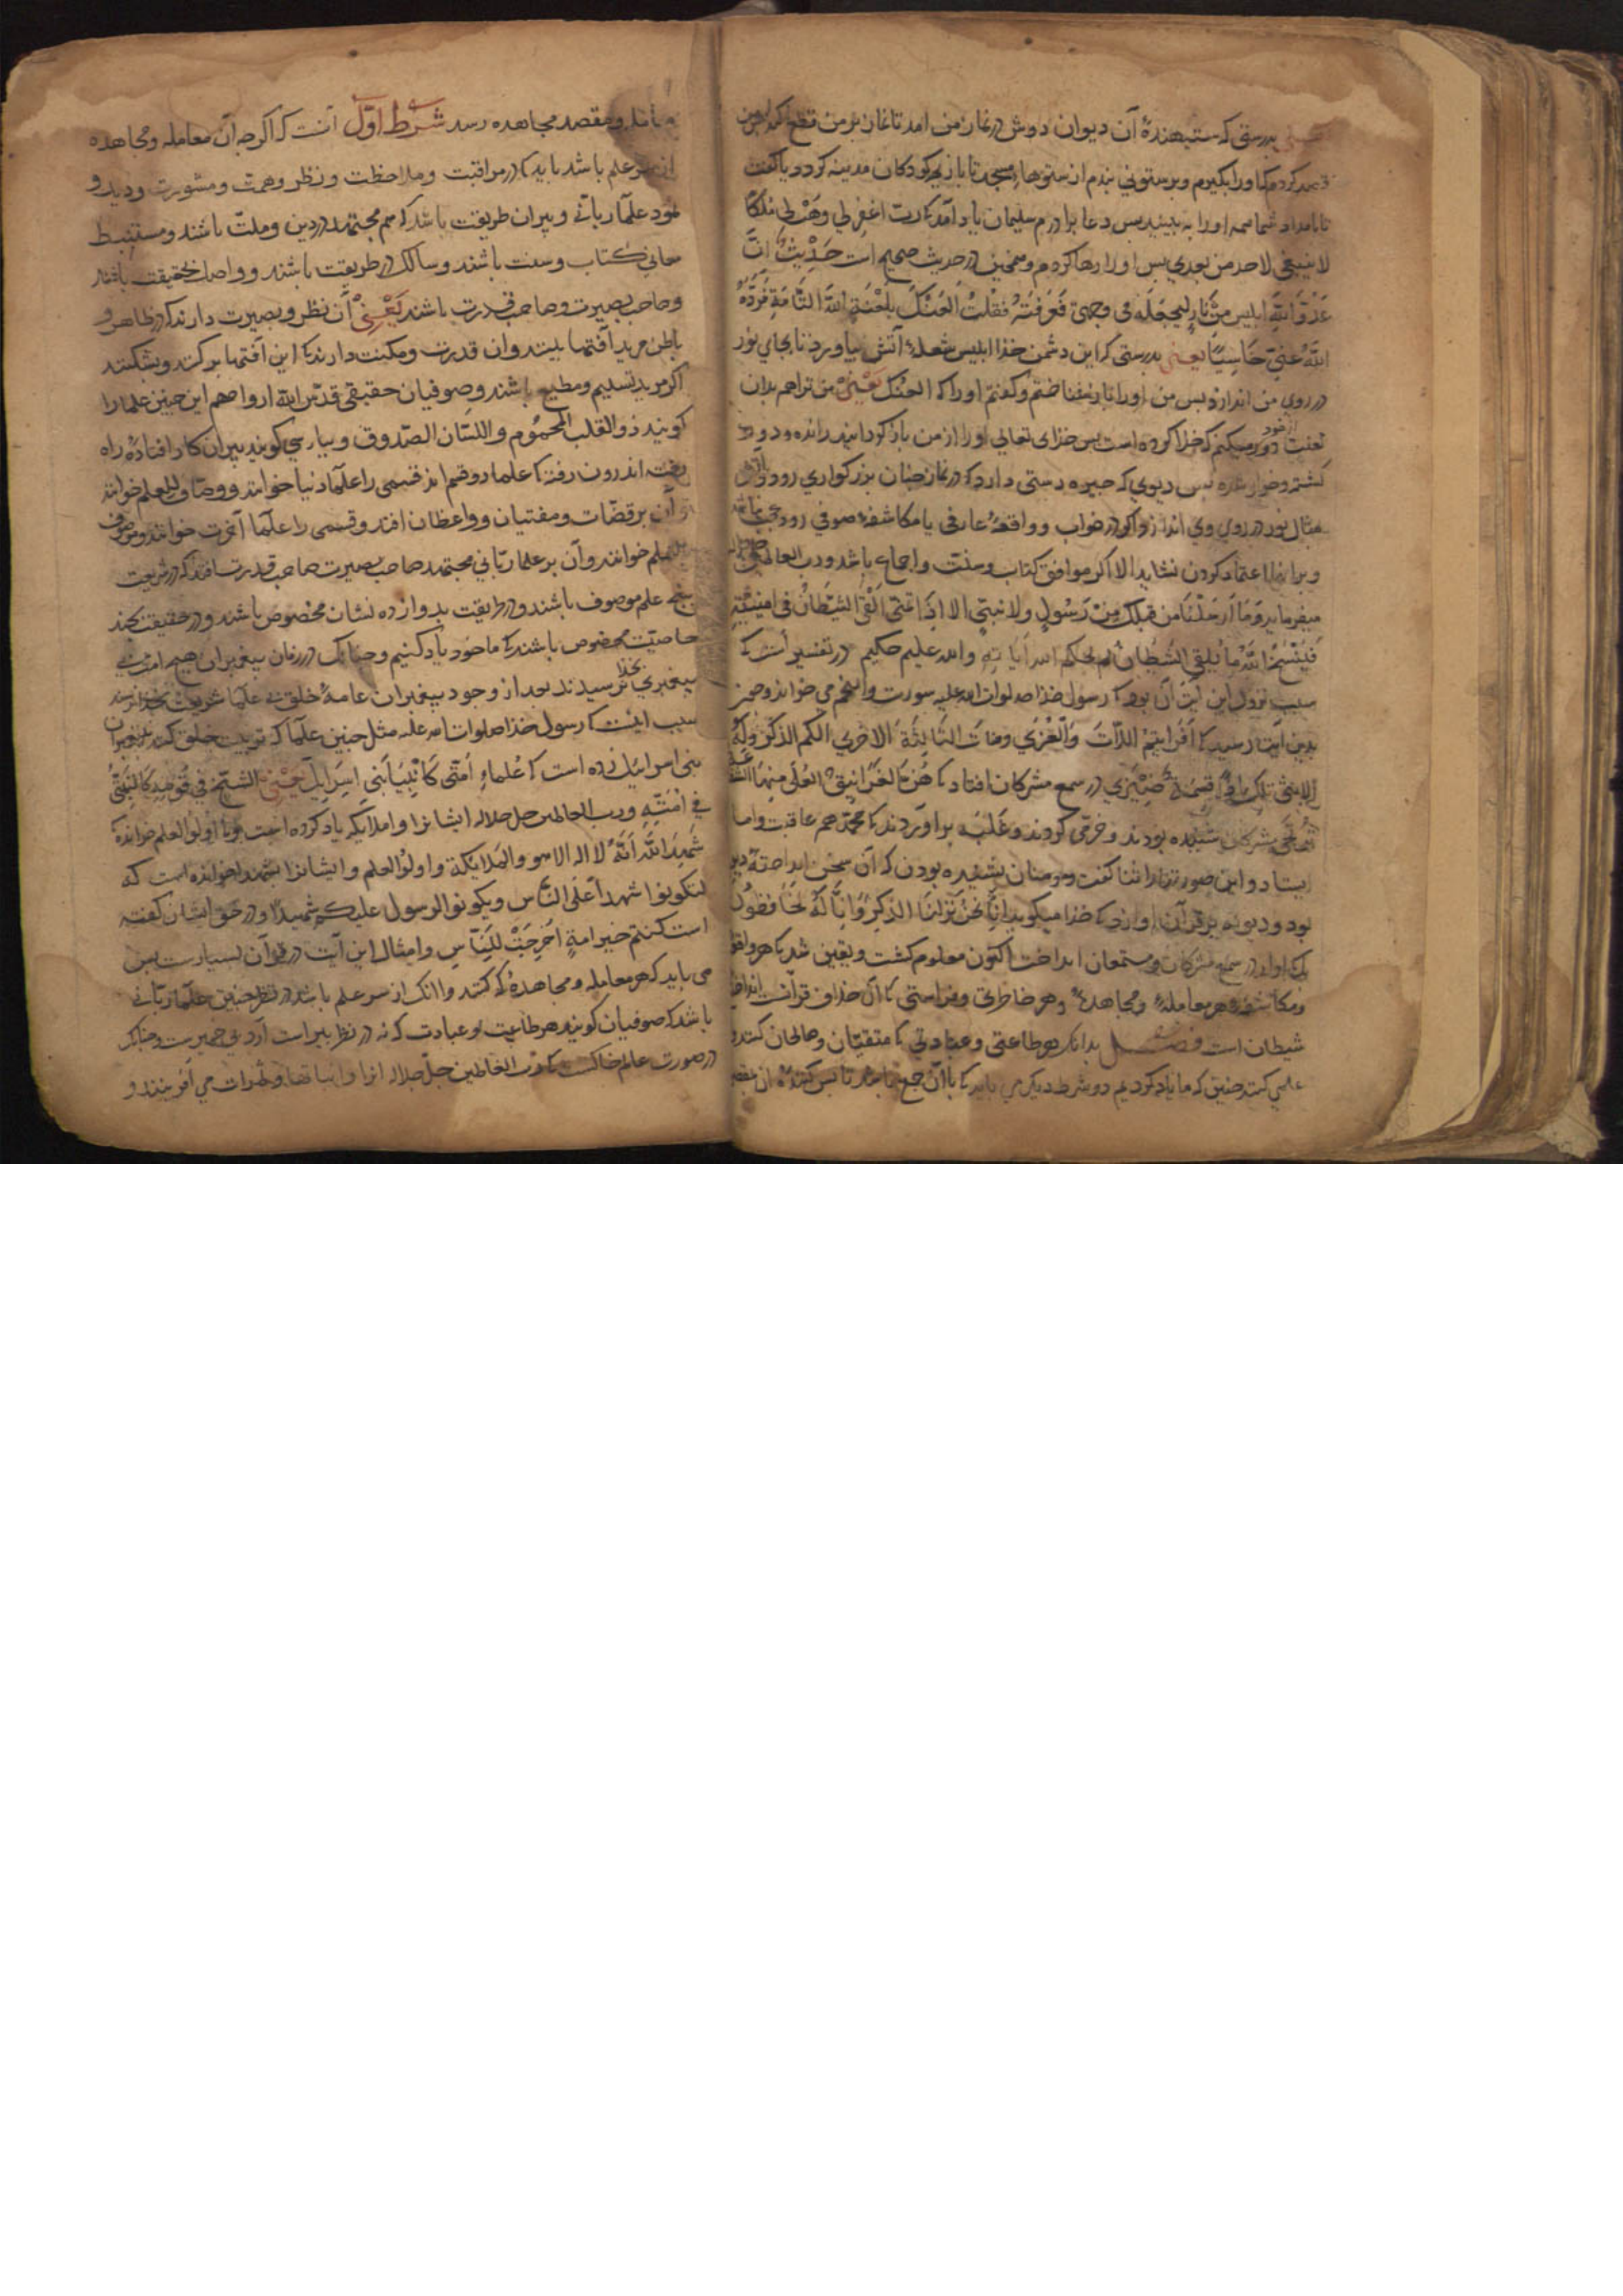 بدرستی که ستبهندهٔ آن دیوان دوش در نماز من امد تا نماز بر من قطع کند
قصد کردم کی او را بکیرم و بر ستونی بندم از ستونها مسجد تا بازیچه کودکان مدینه کردد یا کفت
تا بامداد شما همه او را به بینید بس دعا برادرم سلیمان یاد آمد کی رب اغفر لی وهب لی ملکا
لا ینبغی لاحد من بعدی بس او را رها کردم و همچنین در حدیث صحیح است حدیث ان
عدو الله ابلیس من نار لیجعله فی وجهی فعرفته فقلت العنک بلعنة الله التامة فرده
الله عنی خاسیا یعنی بدرستی که این دشمن خذا ابلیس شعلهٔ آتش بیاورد تا بجای نور
در روی من اندازد بس من او را باز شناختم و کفتم او را که العنک یعنی من ترا هم بدان
لعنت از خود دور میکنم که خدا کرده است بس خدای تعالی او را از من باز کردانید رانده و دور
کشته و خوار شده بس دیوی که جیره دستی دارد که در نماز جنان بزرکواری رود و آتش
مثال نور در روی وی اندازد اکر در خواب و واقعهٔ عارفی یا مکاشفهٔ صوفی رود عجب نباشد
و بر انها اعتماد کردن نشاید الا اکر موافق کتاب و سنت و اجماع باشد و رب العالمین
میفرماید وما ارسلنا من قبلک من رسول ولا نبی الا اذا تمنی القی الشیطان فی امنیته
فینسخ الله ما یلقی الشیطان ثم یحکم الله آیاته والله علیم حکیم در تفسیر است که
سبب نزول این آیت آن بود که رسول خذا صلوات الله علیه سورت والنجم می خواند و جون
بدین آیتها رسید که افرایتم اللات والعزی ومناة الثالثة الاخری الکم الذکر وله
الانثی تلک اذا قسمة ضیزی در سمع مشرکان افتاد که هن الغرانیق العلی منها الشفاعة
ترتجی مشرکان شنیده بودند و خرمی کردند و غلبه براوردند که محمد هم عاقبت واما
ایستاد و این صورتها را ثنا کفت و مومنان بشنیده بودن که آن سخن انداختهٔ دیو
بود و دیو را بر قرآن اوازد که خذا میکوید انا نحن نزلنا الذکر وانا له لحافظون
لیک اواز در سمع مشرکان و مستمعان انداخت اکنون معلوم کشت و یقین شد که هر واقعه
و مکاشفه و هر معامله و مجاهدهٔ و هر خاطری و فراستی که آن خلاف قرآنست انداختهٔ
شیطان است فصل بدانک هر طاعتی و عبادتی که متقیان و صالحان کنند و
علمی کنند جنین که ما یاد کردیم دو شرط دیکر می باید که با آن جمع باشد تا بس کنندهٔ آن بمقصد
و مقصد مجاهده رسد شرط اول آنست که اکر جه آن معامله و مجاهده
از سر علم باشد باید که در مراقبت و ملاحظت و نظر و همت و مشورت و دید و
علما ربانی و پیران طریقت باشد که هم مجتهد در دین و ملت باشند و مستنبط
معانی کتاب و سنت باشند و سالک در طریقت باشند و واصل حقیقت باشند
و صاحب بصیرت و صاحب قدرت باشند یعنی آن نظر و بصیرت دارند که در ظاهر و
باطن مرید آفتها بینند و ان قدرت و مکنت دارند که این آفتها بر کنند و بشکنند
اکر مرید تسلیم و مطیع باشند و صوفیان حقیقی قدس الله ارواحهم این جنین علما را
کویند ذو القلب المحموم واللسان الصدوق و بپارسی کویند پیران کار افتاده راه
رفته اندرون رفته که علما دو قسم اند قسمی را علما دنیا خوانند و وصاف للعلم خوانند
و آن بر قضات و مفتیان و واعظان افتد و قسمی را علما آخرت خوانند و موصوف
بالعلم خوانند و آن بر علما ربانی مجتهد صاحب بصیرت صاحب قدرت افتد که در شریعت
بنج علم موصوف باشند و در طریقت بدوازده نشان مخصوص باشند و در حقیقت بجند
خاصیت مخصوص باشند که ما خود یاد کنیم و جنانک در زمان پیغمبران هیچ امت بی
پیغمبری بخدا نرسیدند بعد از وجود پیغمبران عامهٔ خلق بی علما شریعت بخدا نرسند
سبب اینست که رسول خذا صلوات الله علیه مثل جنین علما که تربیت خلق کنند به پیغمبران
بنی اسرائیل زده است که علماء امتی کانبیا بنی اسراییل یعنی الشیخ فی قومه کالنبی
فی امته و رب العالمین جل جلاله ایشانرا و املایکه یاد کرده است و با اولو العلم خوانده که
شهد الله انه لا اله الا هو والملایکة واولو العلم و ایشانرا شهدا خوانده است که
لتکونوا شهدا علی الناس ویکون الرسول علیکم شهیدا و در حق ایشان کفته
است کنتم خیر امة اخرجت للناس و امثال این آیت در قرآن بسیارست بس
می باید که هر معامله و مجاهدهٔ که کنند و اانک از سر علم باشد در نظر جنین علما ربانی
باشد که صوفیان کویند هر طاعت و عبادت که نه در نظر پیر است آرد بی خمیرست و جنانک
در صورت عالم خاکست که رب العالمین جل جلاله انرا و نباتها و ثمرات می آفریند و